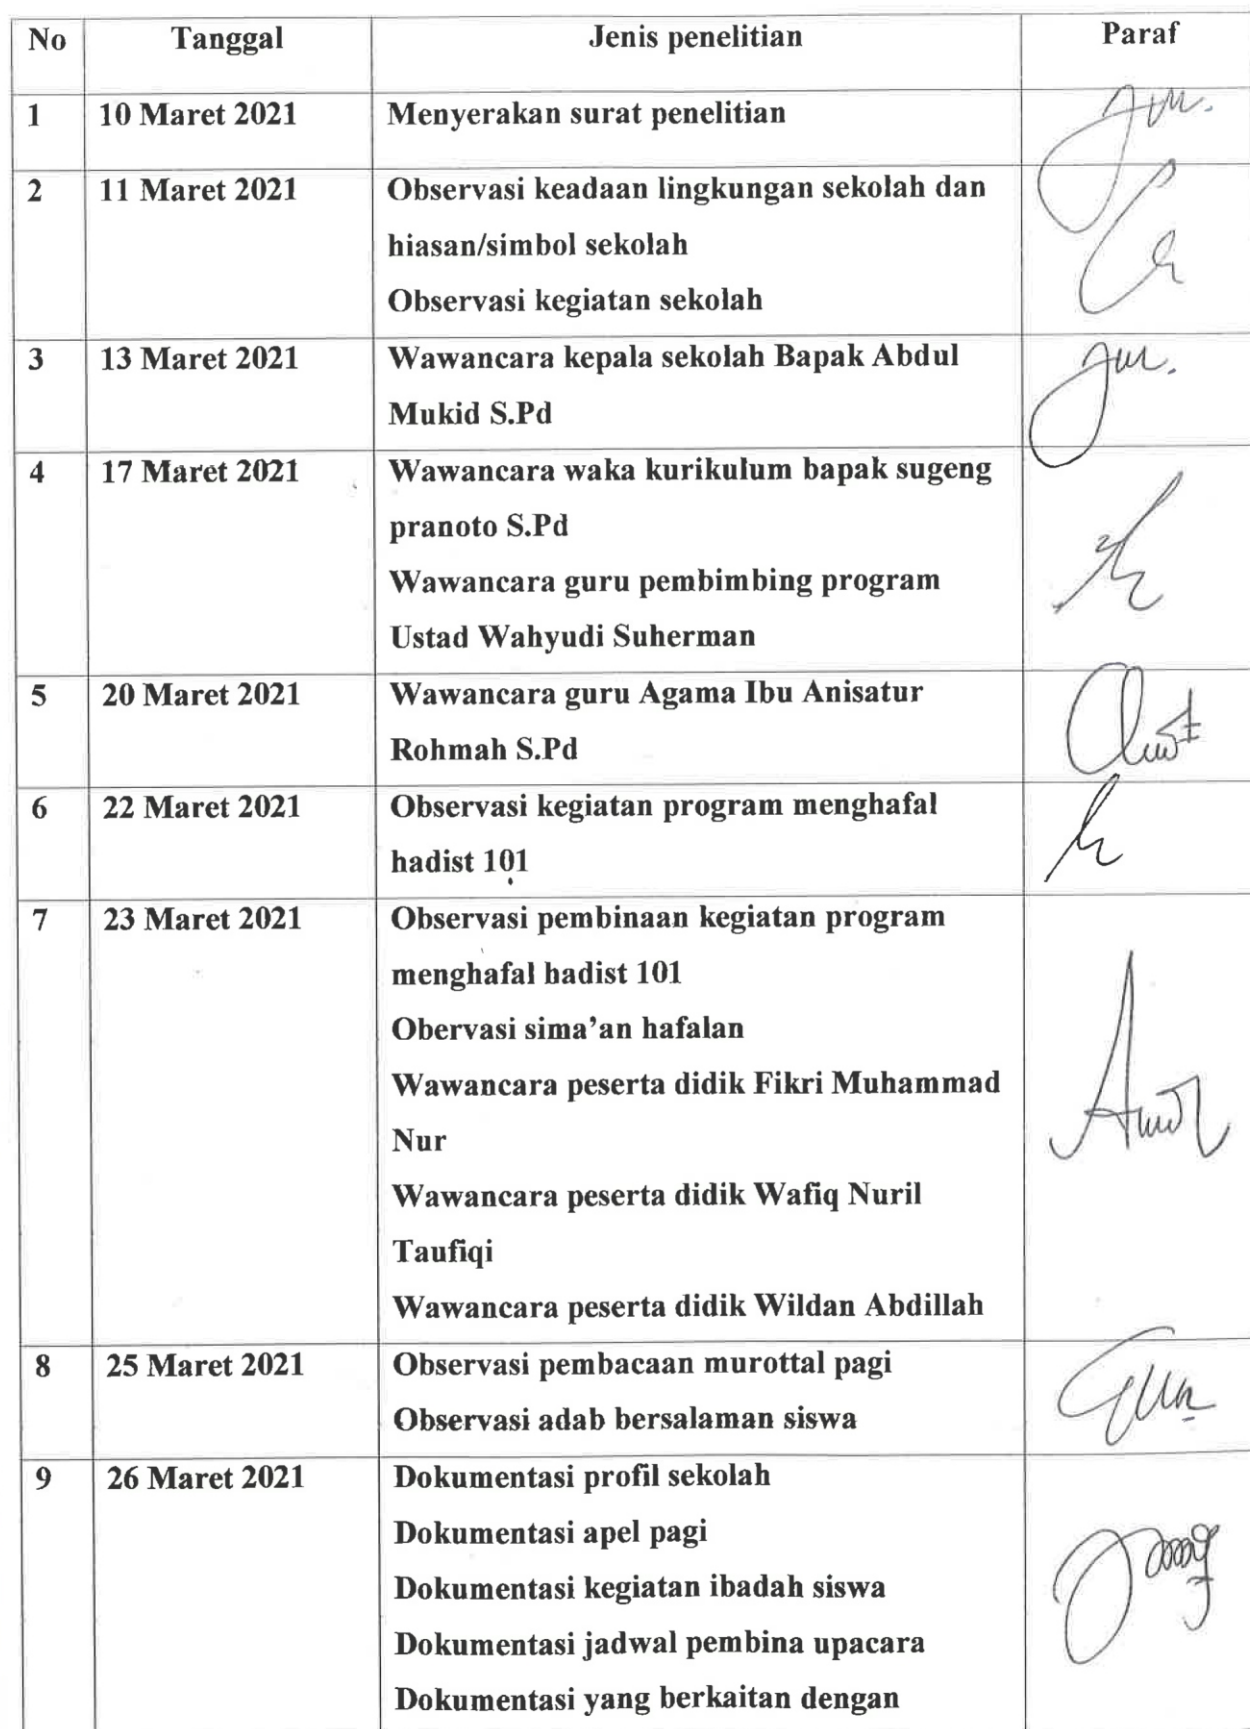 No Tanggal Jenis penelitian Paraf
1 10 Maret 2021 Menyerakan surat penelitian
2 11 Maret 2021 Observasi keadaan lingkungan sekolah dan
hiasan/simbol sekolah
Observasi kegiatan sekolah
3 13 Maret 2021 Wawancara kepala sekolah Bapak Abdul
Mukid S.Pd
4 17 Maret 2021 Wawancara waka kurikulum bapak sugeng
pranoto S.Pd
Wawancara guru pembimbing program
Ustad Wahyudi Suherman
5 20 Maret 2021 Wawancara guru Agama Ibu Anisatur
Rohmah S.Pd
6 22 Maret 2021 Observasi kegiatan program menghafal
hadist 101
7 23 Maret 2021 Observasi pembinaan kegiatan program
menghafal hadist 101
Obervasi sima’an hafalan
Wawancara peserta didik Fikri Muhammad
Nur
Wawancara peserta didik Wafiq Nuril
Taufiqi
Wawancara peserta didik Wildan Abdillah
8 25 Maret 2021 Observasi pembacaan murottal pagi
Observasi adab bersalaman siswa
9 26 Maret 2021 Dokumentasi profil sekolah
Dokumentasi apel pagi
Dokumentasi kegiatan ibadah siswa
Dokumentasi jadwal pembina upacara
Dokumentasi yang berkaitan dengan